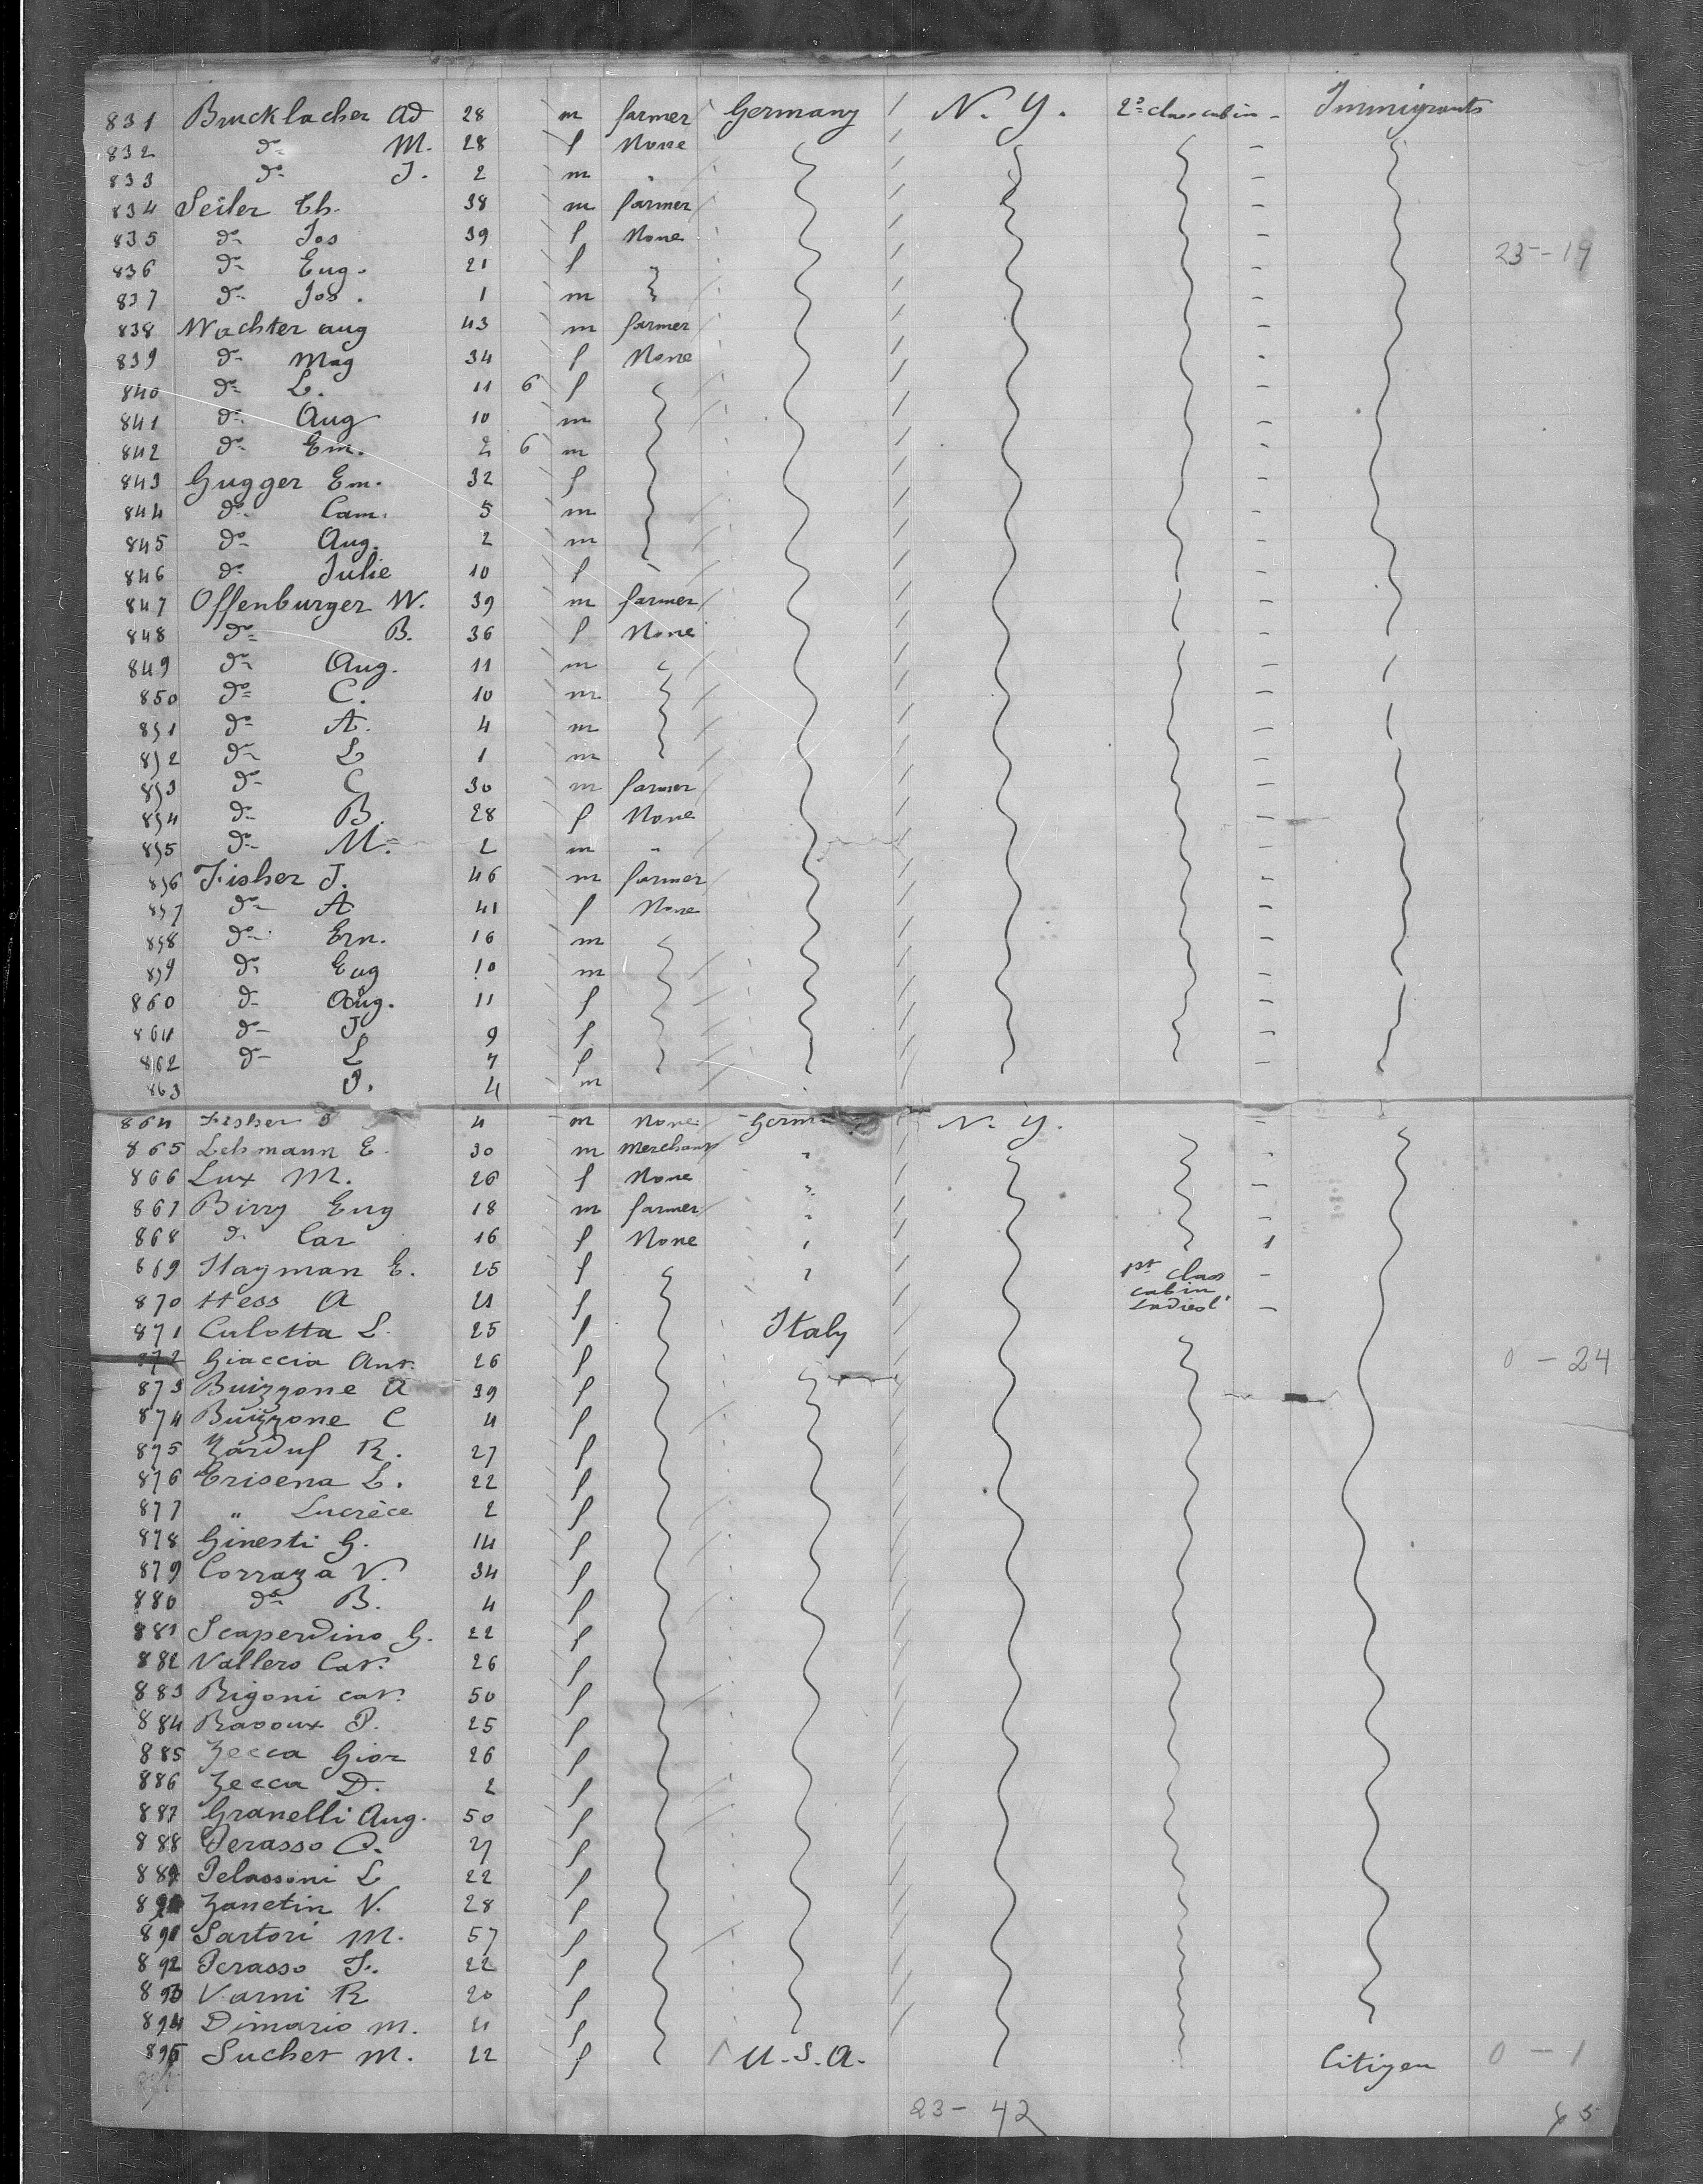 831 Brucklacher Ad 28 m farmer Germany N. Y. 2d class cabin - Immigrants
832 do M. 28 f None -
833 do J. 2 m " -
834 Seiler Th. 38 m farmer -
835 do Jos 39 f None - 23-19
836 do Eug. 21 f " -
837 do Jos. 1 m -
838 Wachter aug 43 m farmer -
839 do Mag 34 f None -
840 do L. 11 6 f -
841 do Aug 10 m -
842 do Em. 2 6 m -
843 Gugger Em. 32 f -
844 do Cam. 5 m -
845 do Aug. 2 m -
846 do Julie 10 f -
847 Offenburger W. 39 m farmer -
848 do B. 36 f None -
849 do Aug. 11 m -
850 do C. 10 m -
851 do A. 4 m -
852 do L 1 m -
853 do C 30 m farmer -
854 do B. 28 f None -
855 do M. 2 m " -
856 Fisher J. 46 m farmer -
857 do A 41 f None -
858 do Ern. 16 m -
859 do Eug 10 m -
860 do Aug. 11 f -
861 do J 9 f -
862 do L 7 f -
863 J. 4 m
864 Fisher J 4 m None N. Y. -
865 Lehmann E. 30 m Merchant " -
866 Lux M. 26 f None " -
867 Birry Eug 18 m farmer " -
868 do Car 16 f None " 1
869 Hayman E. 25 f " 1st class cabin -
870 Hess A 21 f -
871 Culotta L. 25 f Italy
872 Giaccia Ant. 26 f 0 - 24
873 Buizzone A 39 f
874 Buizzone C 4 f
875 Zarduf R. 27 f
876 Erisena L. 22 f
877 " Lucrèce 2 f
878 Ginesti G. 14 f
879 Corraza V. 34 f
880 do B. 4 f
881 Scaperdino G. 22 f
882 Vallero Cat. 26 f
883 Bigoni cat. 50 f
884 Rasoux P. 25 f
885 Zecca Gior 26 f
886 Zecca D. 2 f
887 Granelli Aug. 50 f
888 Perasso C. 27 f
889 Pelassoni L 22 f
890 Zanetin V. 28 f
891 Sartori M. 57 f
892 Perasso F. 22 f
893 Varni R 20 f
894 Dimario m. 21 f
895 Sucher m. 22 f U.S.A. Citizen 0 - 1
23- 42